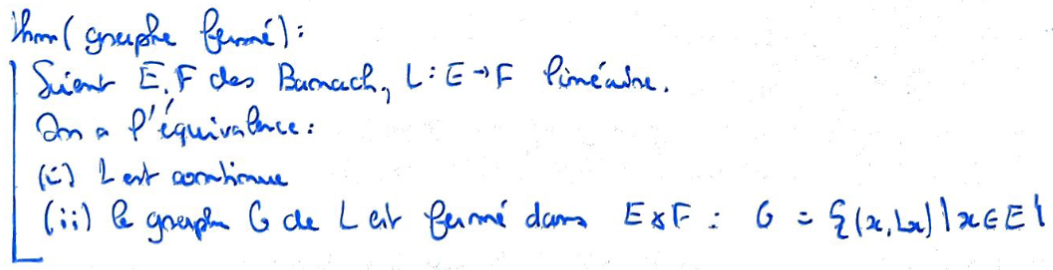 Thm (graphe fermé):
Soient E, F des Banach, L : E → F linéaire.
On a l'équivalence:
(i) L est continue
(ii) le graphe G de L est fermé dans E×F : G = {(x, Lx) | x ∈ E}